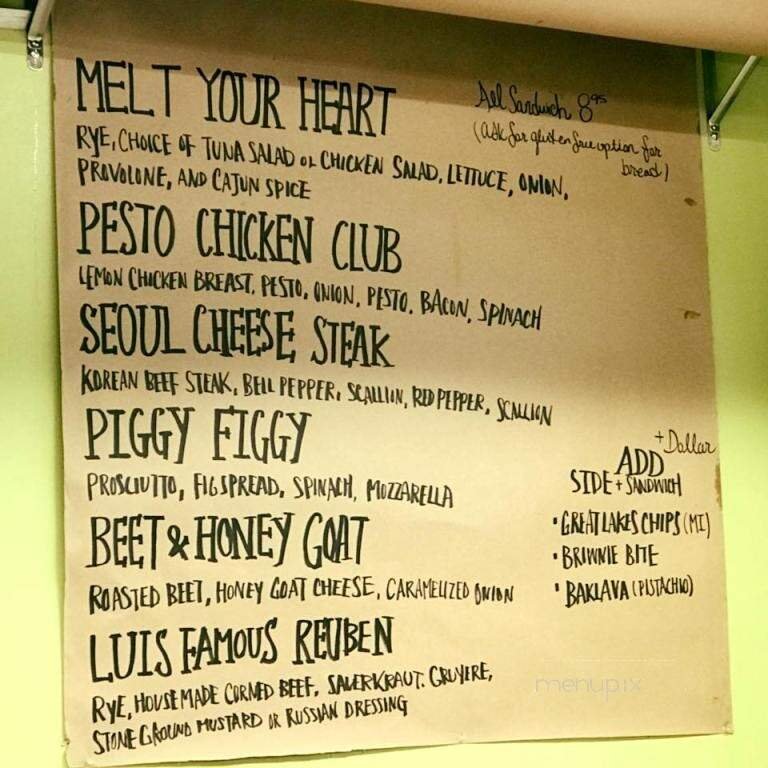 MELT YOUR HEART
All Sandwich 8.95
(ask for gluten free option for
bread)
RYE, CHOICE OF TUNA SALAD OR CHICKEN SALAD, LETTUCE, ONION,
PROVOLONE, AND CAJUN SPICE
PESTO CHICKEN CLUB
LEMON CHICKEN BREAST, PESTO, ONION, PESTO, BACON, SPINACH
SEOUL CHEESE STEAK
KOREAN BEEF STEAK, BELL PEPPER, SCALLION, RED PEPPER, SCALLION
PIGGY FIGGY
PROSCIUTTO, FIG SPREAD, SPINACH, MOZZARELLA
+ Dollar
ADD
SIDE + SANDWICH
• GREAT LAKES CHIPS (MI)
• BROWNIE BITE
• BAKLAVA (PISTACHIO)
BEET & HONEY GOAT
ROASTED BEET, HONEY GOAT CHEESE, CARAMELIZED ONION
LUIS FAMOUS REUBEN
RYE, HOUSEMADE CORNED BEEF, SAUERKRAUT. GRUYERE,
STONE GROUND MUSTARD OR RUSSIAN DRESSING
menupix